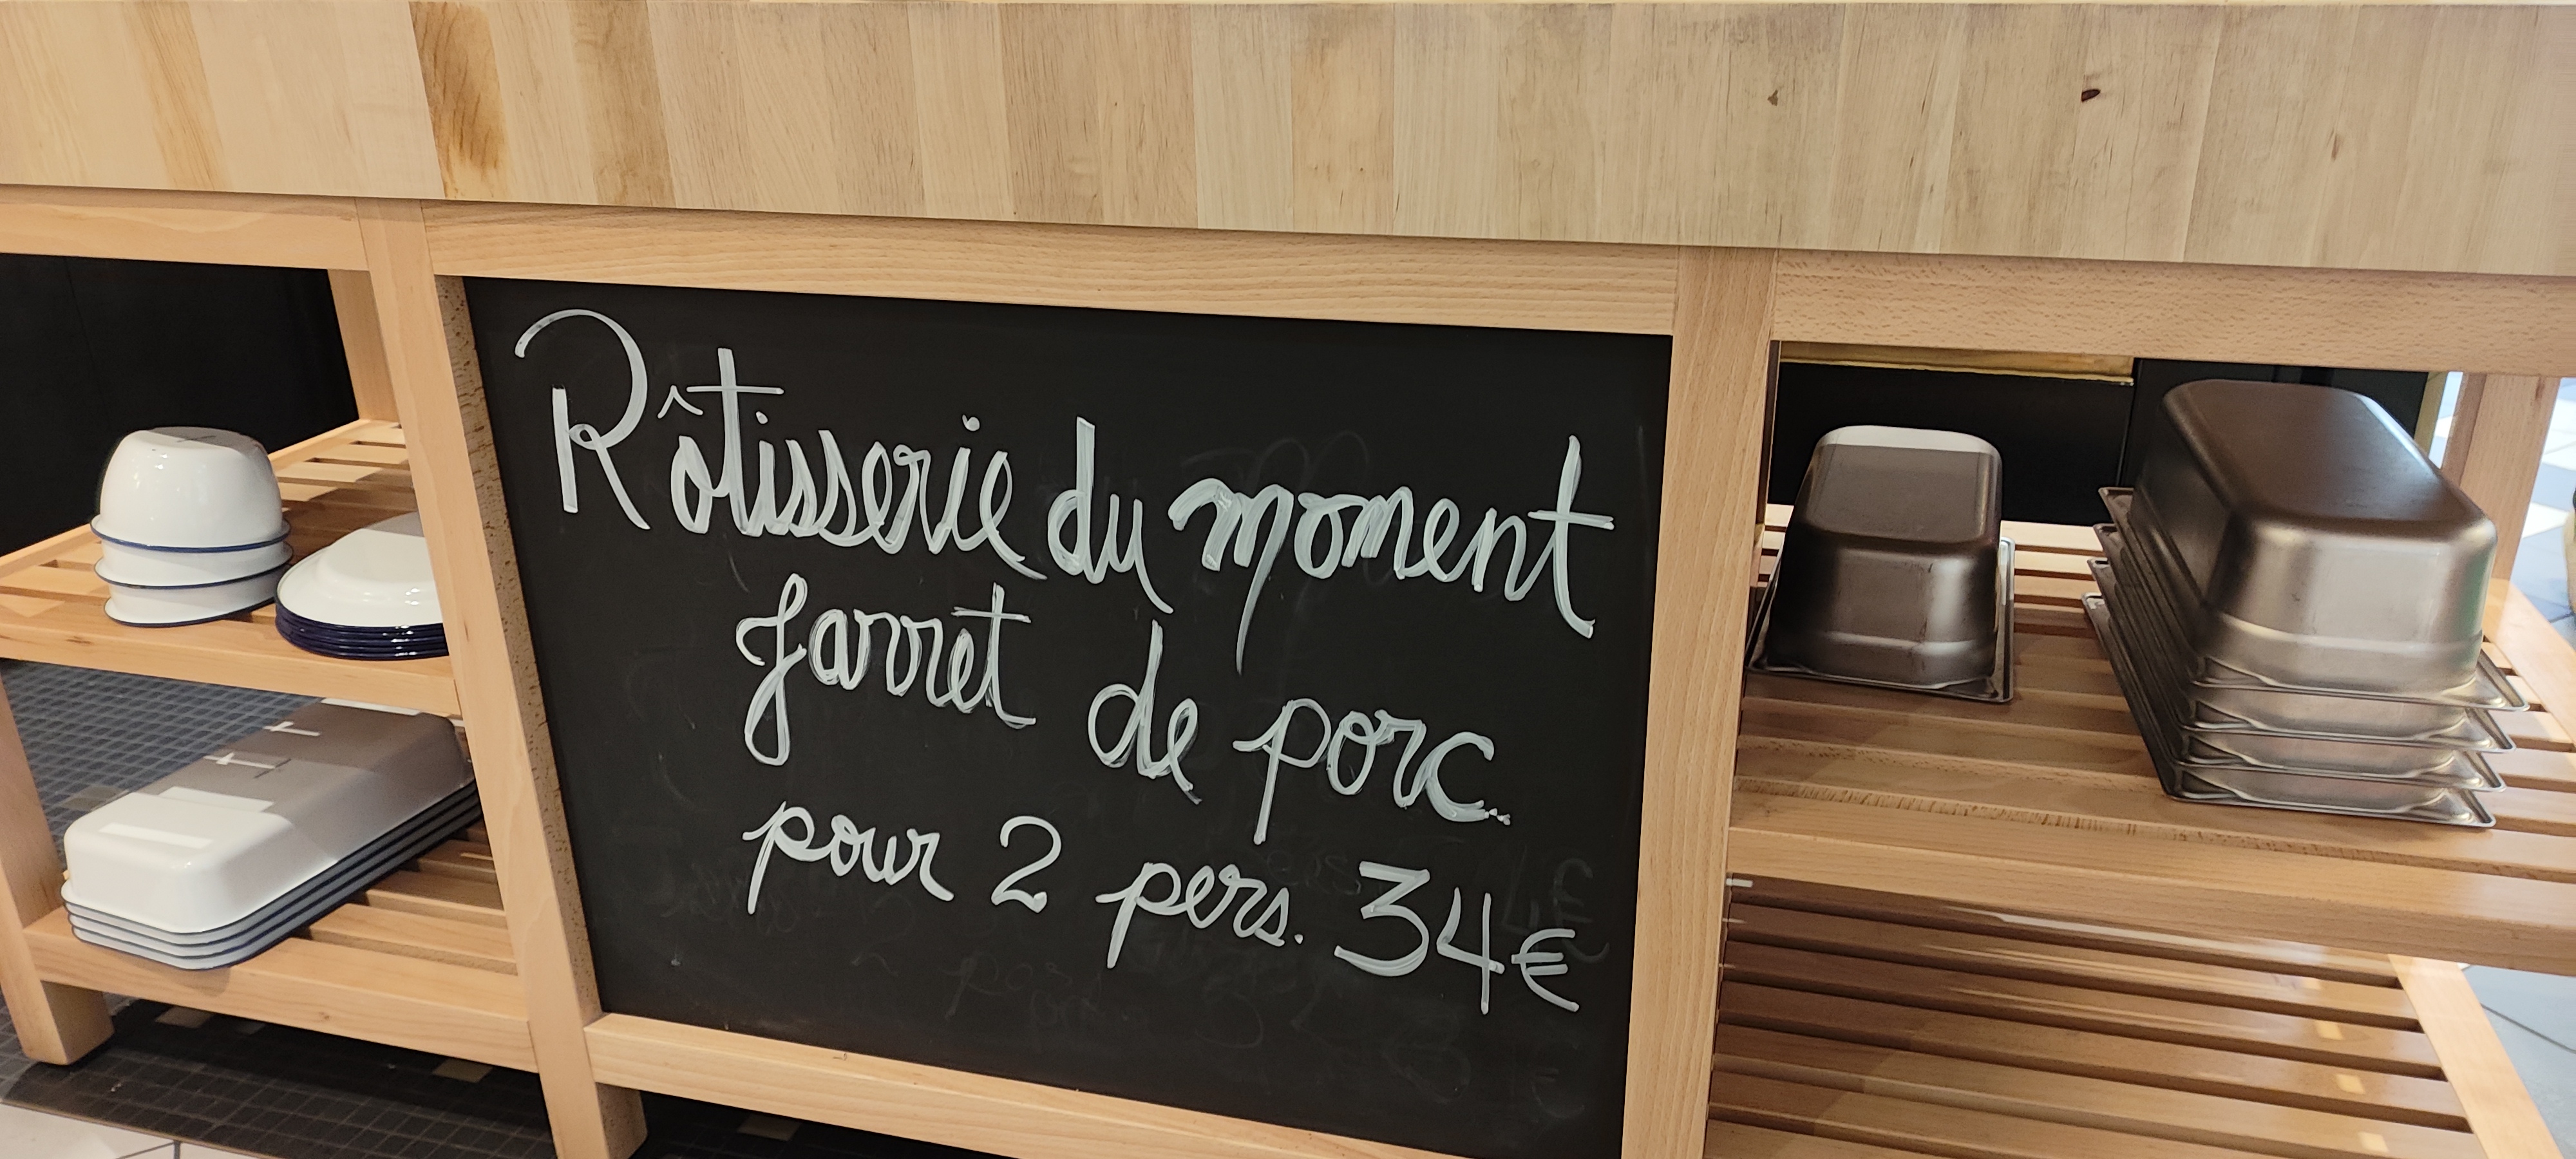 Rôtisserie du moment
Jarret de porc
pour 2 pers. 34€